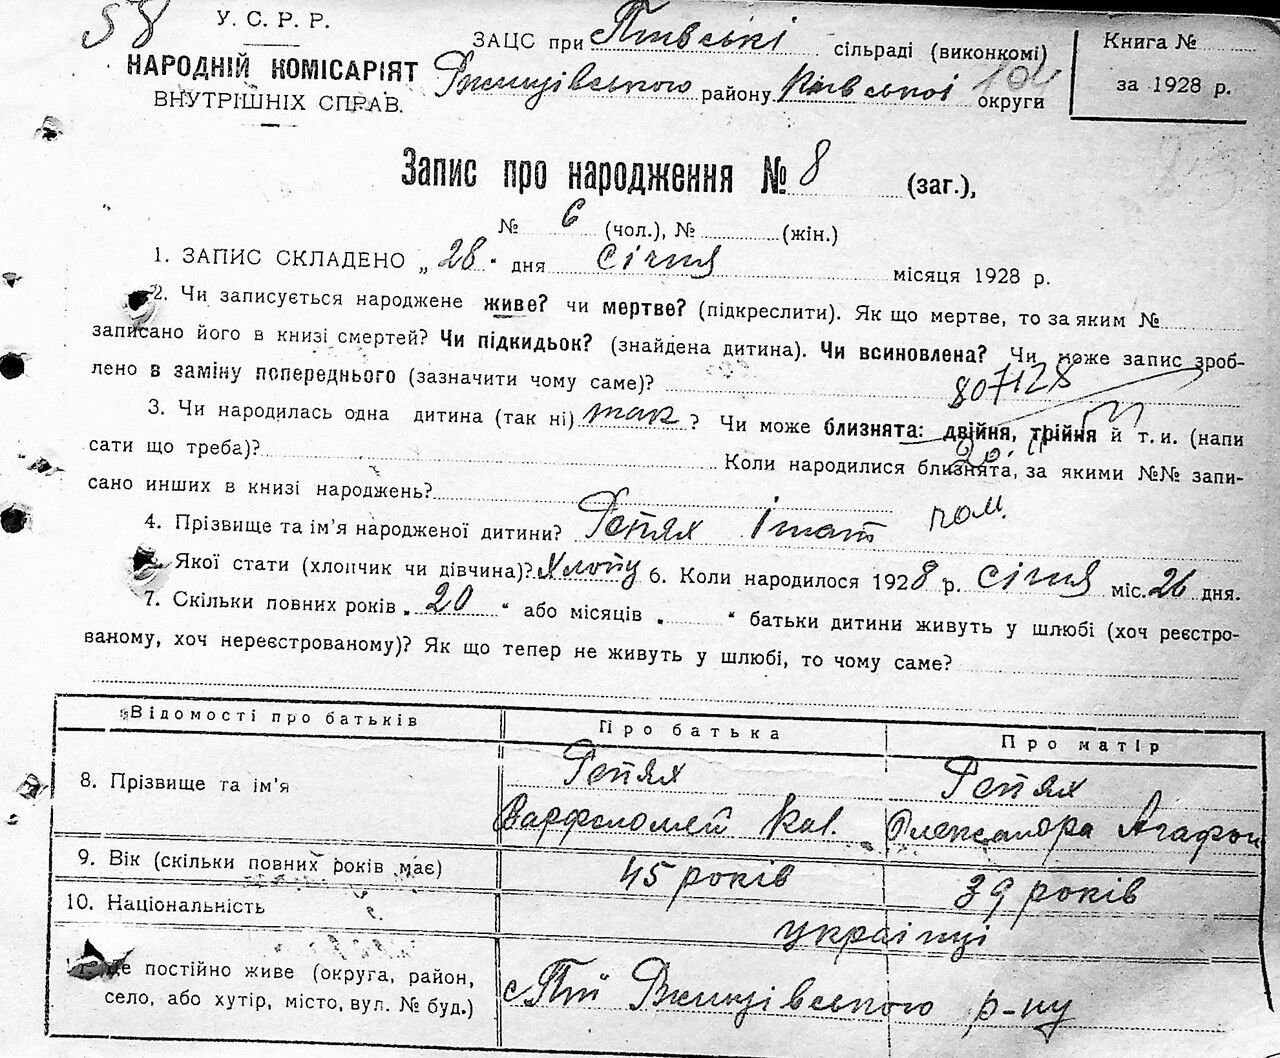 58
У. С. Р. Р.
НАРОДНІЙ КОМІСАРІЯТ
ВНУТРІШНІХ СПРАВ.
ЗАЦС при Пиївські сільраді (виконкомі)
Ржищівського району Київської округи
Книга №
за 1928 р.
Запис про народження № 8 (заг.),
№ 6 (чол.), № (жін.)
1. ЗАПИС СКЛАДЕНО „ 28 " дня січня місяця 1928 р.
2. Чи записується народжене живе? чи мертве? (підкреслити). Як що мертве, то за яким №
записано його в книзі смертей? Чи підкидьок? (знайдена дитина). Чи всиновлена? Чи може запис зроб-
лено в заміну попереднього (зазначити чому саме)?
3. Чи народилась одна дитина (так ні) так ? Чи може близнята: двійня, трійня й т. и. (напи
сати що треба)? Коли народилися близнята, за якими №№ запи-
сано инших в книзі народжень?
4. Прізвище та ім'я народженої дитини? Репях Ігнат пом.
Якої стати (хлопчик чи дівчина)? Хлопц 6. Коли народилося 1928 р. січня міс. 26 дня.
7. Скільки повних років „ 20 " або місяців „ " батьки дитини живуть у шлюбі (хоч реєстро-
ваному, хоч нереєстрованому)? Як що тепер не живуть у шлюбі, то чому саме?
Відомості про батьків Про батька Про матір
8. Прізвище та ім'я Репях Варфоломей Кал. Репях Олександра Агафон
9. Вік (скільки повних років має) 45 років 39 років
10. Національність українці
де постійно живе (округа, район,
село, або хутір, місто, вул. № буд.) с. Пії Ржищівського р-ну